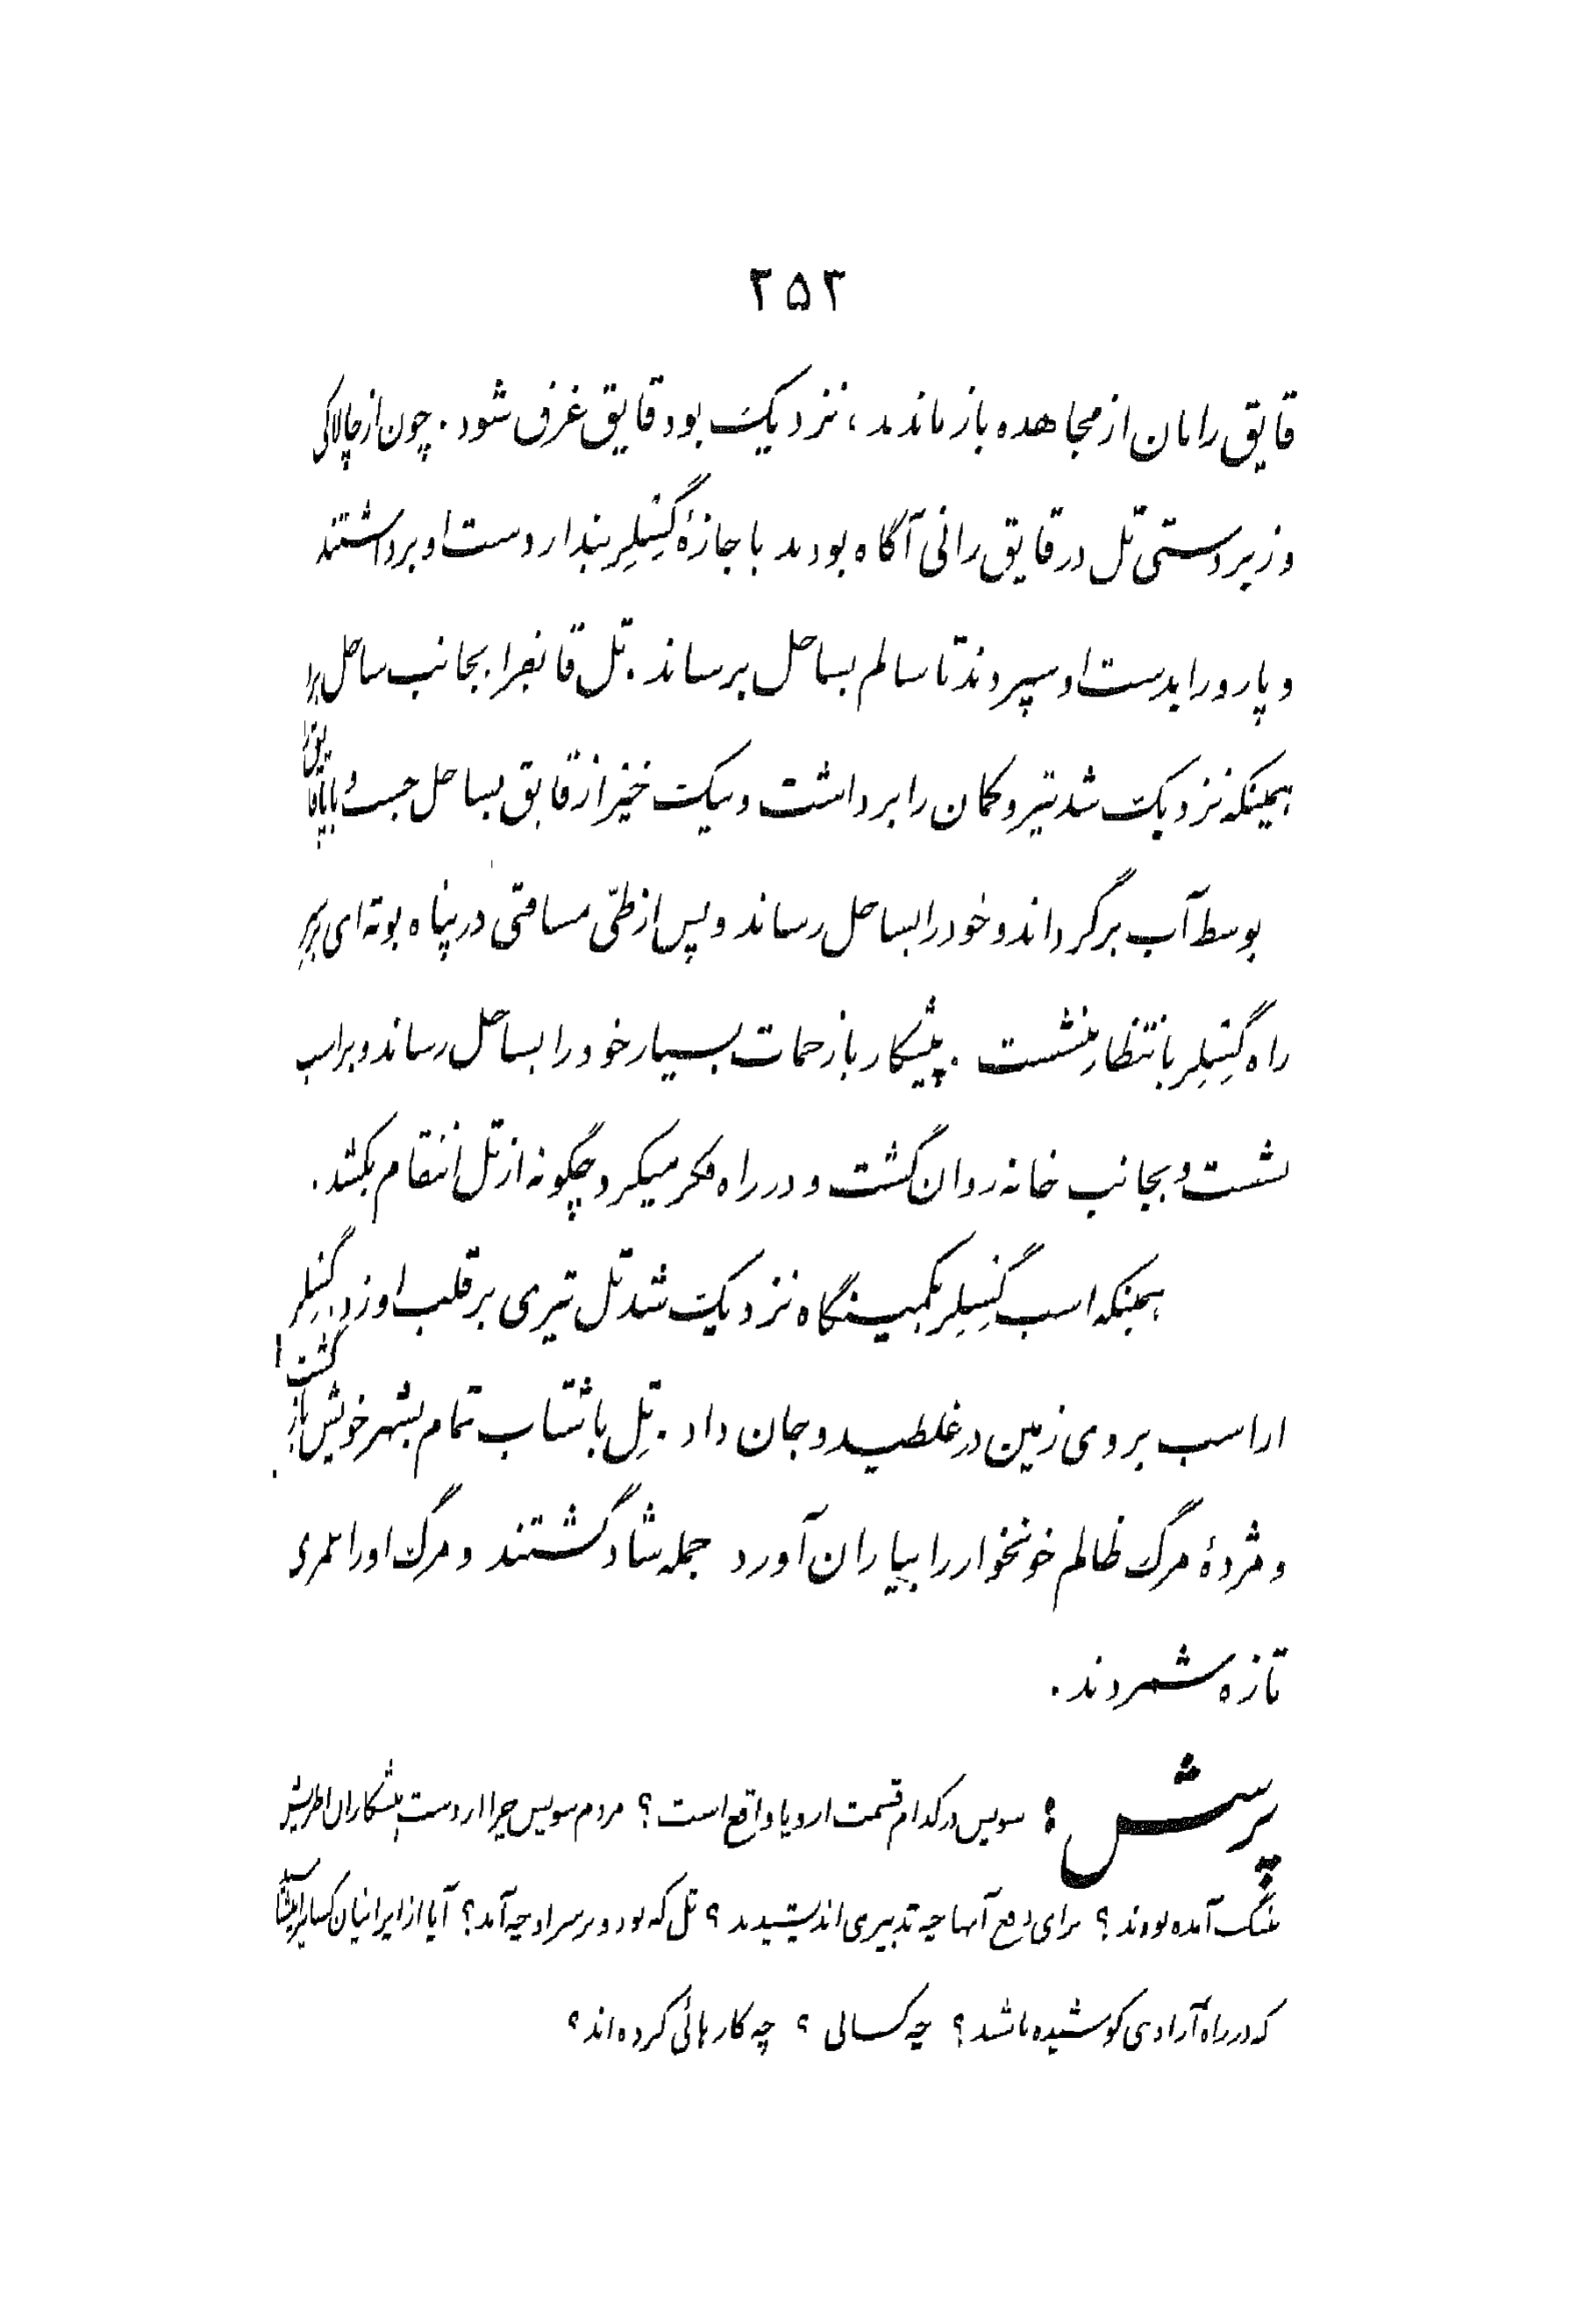 ۲۵۳
قایق رانان از مجاهده باز ماندند، نزدیک بود قایق غرق شود. چون از چالاکی
و زبردستی تل در قایق رانی آگاه بودند با جازهٔ گسیلر بند از دست او برداشتند
و پارو را بدست او سپردند تا سالم بساحل برساند. تل قایقرا بجانب ساحل برد
همینکه نزدیک شد تیر و کمان را برداشت و بیک خیز از قایق بساحل جست و با پا قایق را
بوسط آب برگرداند و خود را بساحل رساند و پس از طیّ مسافتی در پناه بوته‌ای بر سر
راه گسیلر بانتظار نشست. پیشکار با زحمات بسیار خود را بساحل رساند و بر اسب
نشست و بجانب خانه روان گشت و در راه فکر میکرد چگونه از تل انتقام بکشد.
همینکه اسب گسیلر بکمینگاه نزدیک شد تل تیری بر قلب او زد. گسیلر
از اسب بروی زمین در غلطید و جان داد. تِل با شتاب تمام بشهر خویش باز گشت
و مژدهٔ مرگ ظالم خونخوار را بیاران آورد جمله شاد گشتند و مرگ او را عمری
تازه شمردند.
پرسش: سویس در کدام قسمت اروپا واقع است؟ مردم سویس چرا از دست پیشکاران اطریش
بتنگ آمده بودند؟ برای دفع آنها چه تدبیری اندیشیدند؟ تل که بود و بر سر او چه آمد؟ آیا از ایرانیان کسانیرا میشناسید
که در راه آزادی کوشیده باشند؟ چه کسانی؟ چه کارهائی کرده‌اند؟